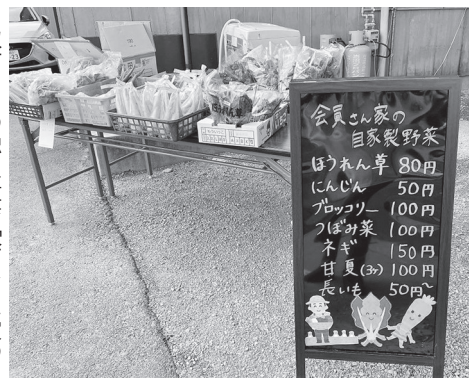 会員さん家の
自家製野菜
ほうれん草 80円
にんじん 50円
ブロッコリー 100円
つぼみ菜 100円
ネギ 150円
甘夏(3ヶ) 100円
長いも 50円~